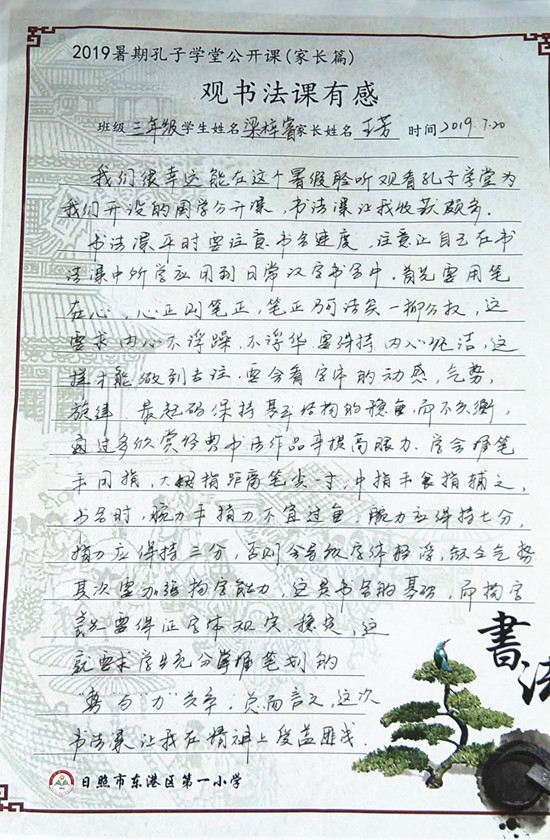 2019暑期孔子学堂公开课(家长篇)
观书法课有感
班级 三年级 学生姓名 梁梓 家长姓名 王芳 时间 2019.7.20
我们很幸运能在这个暑假聆听观看孔子学堂为
我们开设的国学公开课,书法课让我收获颇多.
书法课平时要注意书写速度,注意让自己在书
法课中所学应用到日常汉字书写中.首先要用笔
在心,心正则笔正,笔正乃法矣—柳公权,这
要求内心不浮躁,不浮华要保持内心纯洁,这
样才能做到专注.要会看字体的动感,气势,
旋律.最起码保持基本结构的稳重而不失衡,
通过多欣赏经典书法作品来提高眼力.学会握笔
手同指,大拇指距离笔尖一寸,中指手食指辅之,
书写时,腕力手指力不宜过重,腕力应保持七分,
指力应保持三分,否则会导致字体轻浮,缺乏气势
其次要加强构字能力,这是书写的基础,而构字
首先要保证字体 稳定,这
就要求学生充分掌握笔划的
"势与"力"关系.总而言之,这次
书法课让我在精神上受益匪浅.
書法
日照市东港区第一小学